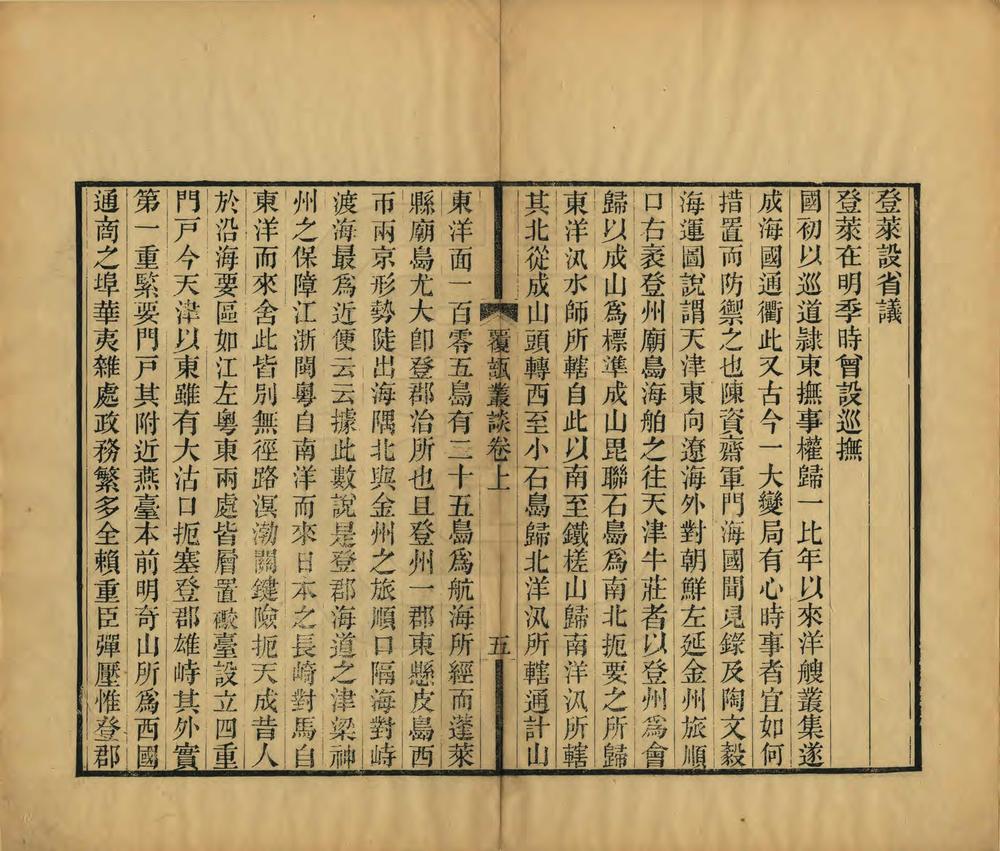 登萊設省議
登萊在明季時曾設巡撫
國初以巡道隸東撫事權歸一比年以來洋艘叢集遂
成海國通衢此又古今一大變局有心時事者宜如何
措置而防禦之也陳資齋軍門海國聞見錄及陶文毅
海運圖說謂天津東向遼海外對朝鮮左延金州旅順
口右袤登州廟島海舶之往天津牛莊者以登州爲會
歸以成山爲標準成山毘聯石島爲南北扼要之所歸
東洋汛水師所轄自此以南至鐵槎山歸南洋汛所轄
其北從成山頭轉西至小石島歸北洋汛所轄通計山
覆瓿叢談卷上
五
東洋面一百零五島有二十五島爲航海所經而蓬萊
縣廟島尤大卽登郡治所也且登州一郡東懸皮島西
帀兩京形勢陡出海隅北與金州之旅順口隔海對峙
渡海最爲近便云云據此數說是登郡海道之津梁神
州之保障江浙閩粵自南洋而來日本之長崎對馬自
東洋而來舍此皆別無徑路溟渤關鍵險扼天成昔人
於沿海要區如江左粵東兩處皆層置礮臺設立四重
門戸今天津以東雖有大沽口扼塞登郡雄峙其外實
第一重緊要門戸其附近燕臺本前明奇山所爲西國
通商之埠華夷雜處政務繁多全賴重臣彈壓惟登郡